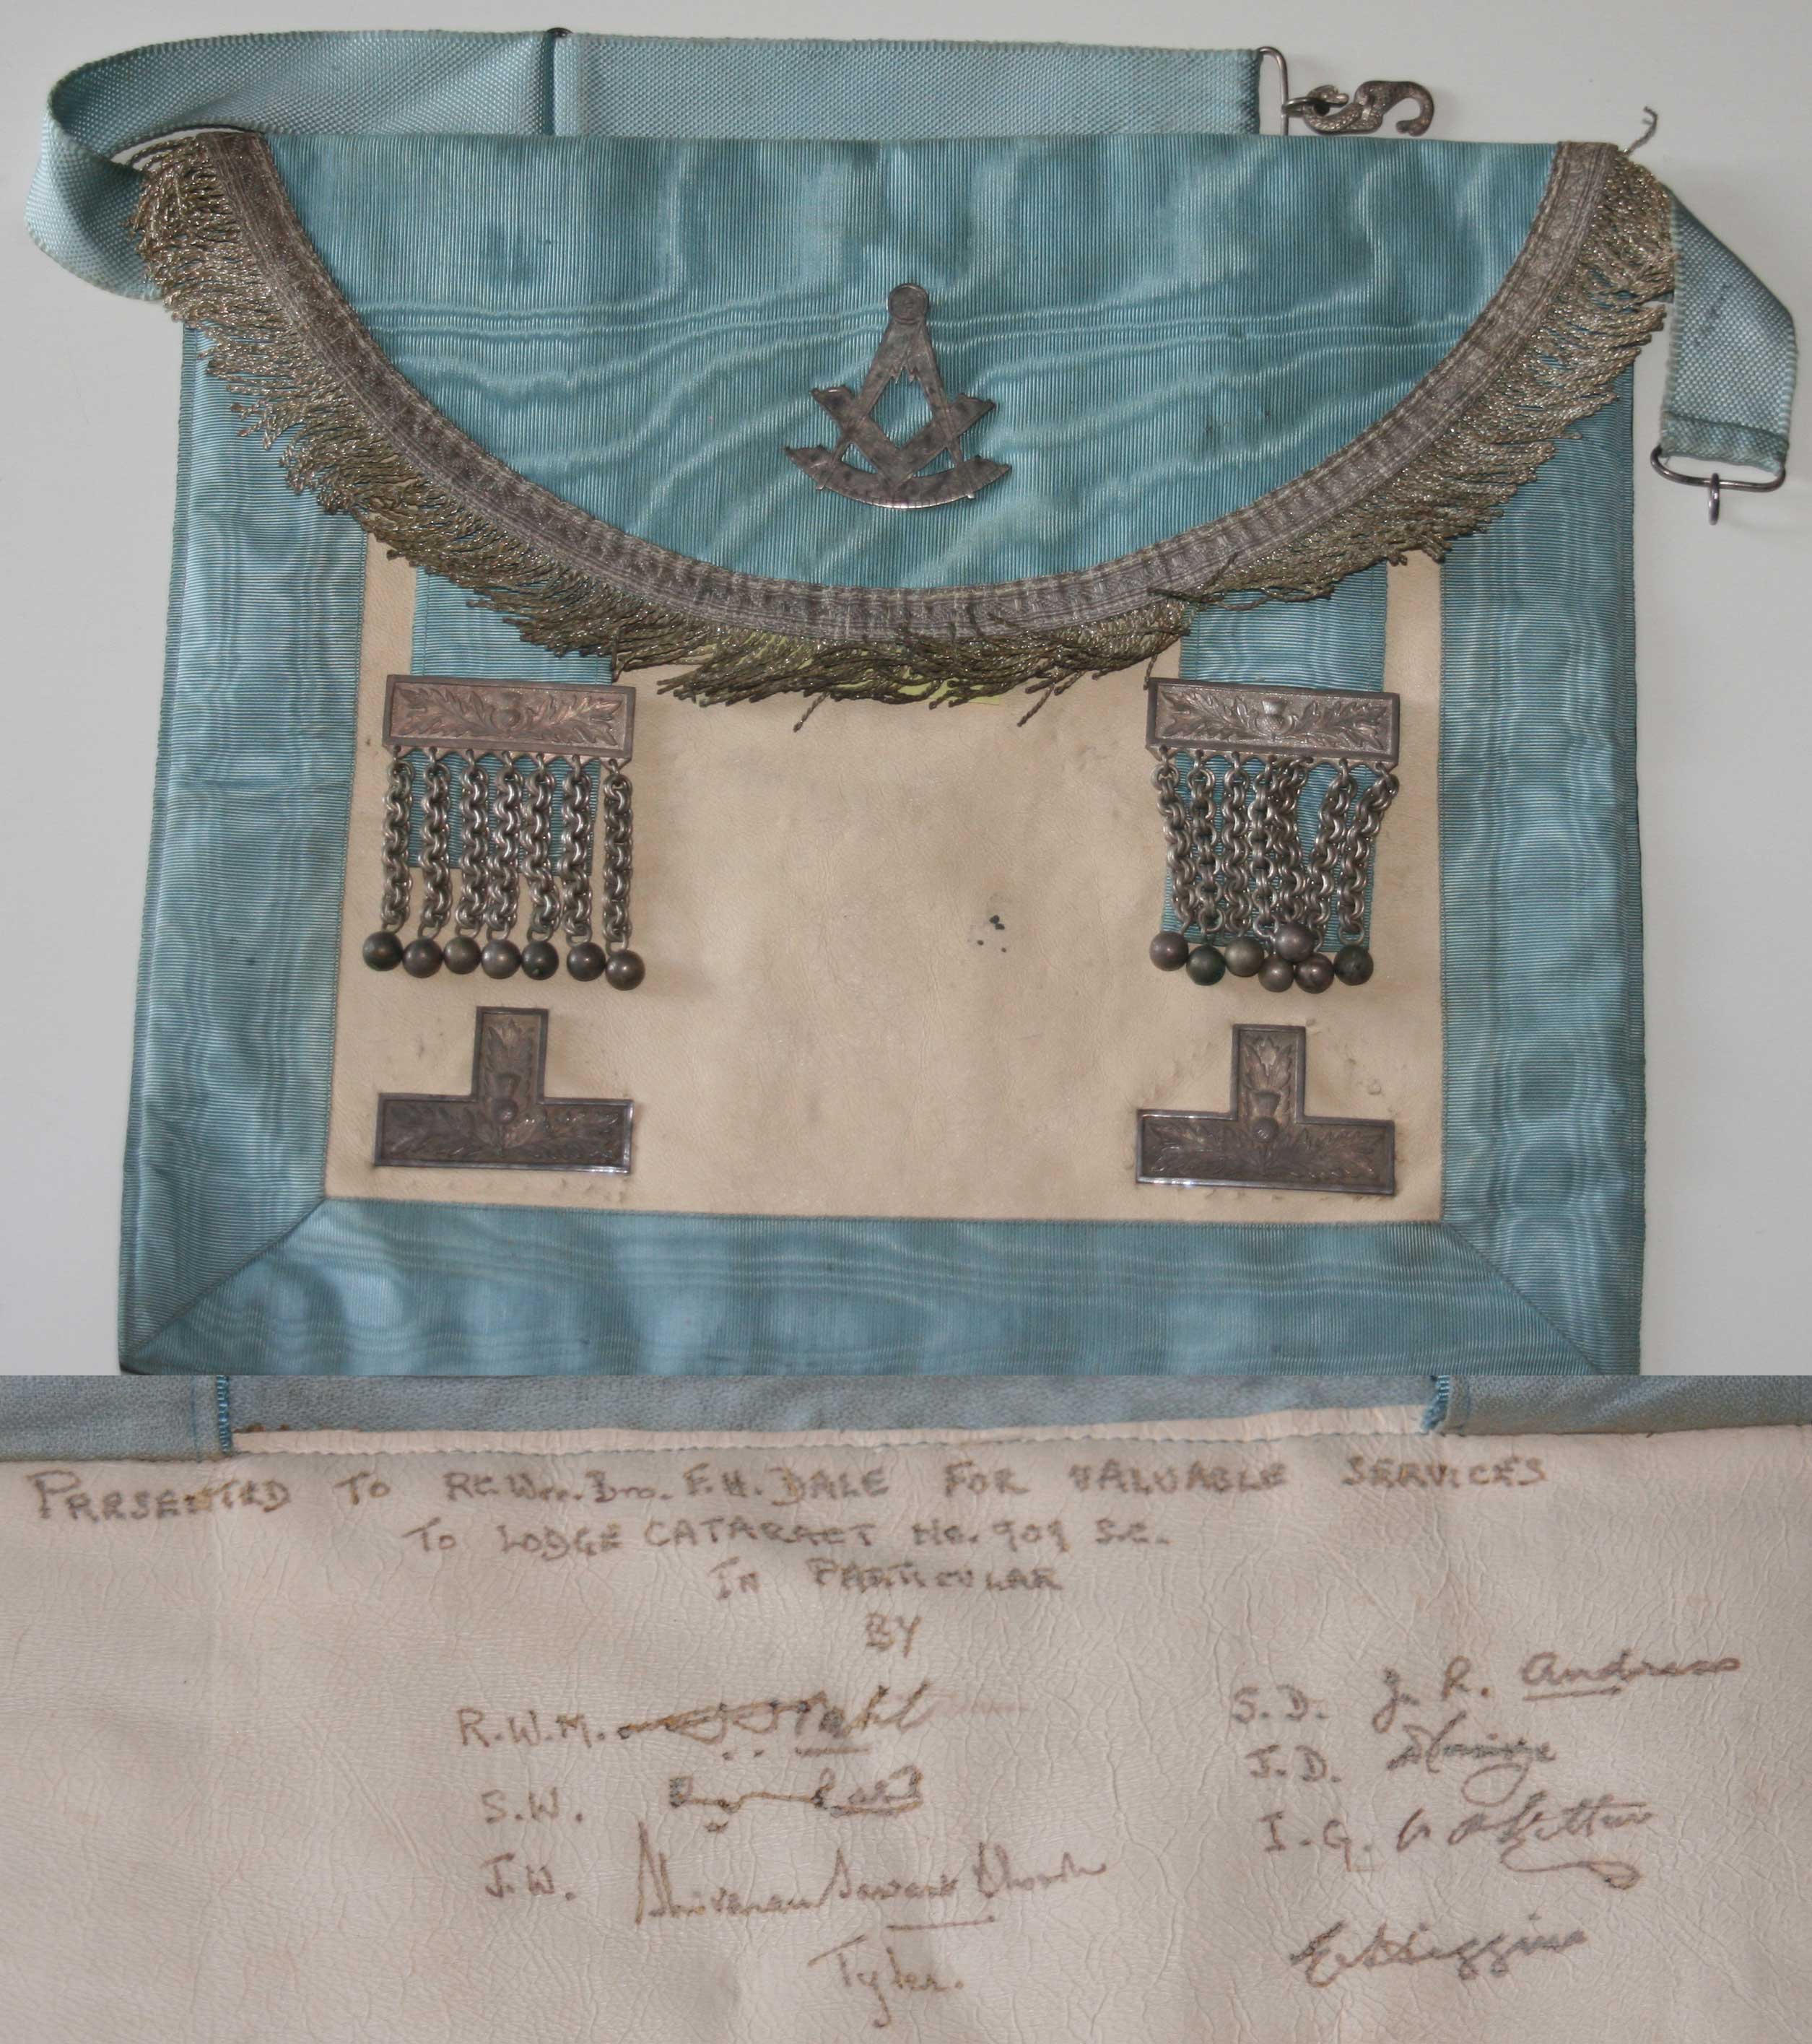 PRESENTED TO Rt. Wor. Bro. F.H. DALE FOR VALUABLE SERVICES
TO LODGE CATARACT No. 909 S.C.
IN PARTICULAR
BY
R.W.M.
S.W.
J.W.
Tyler.
S.D. J. R. Andrews
J.D.
I.G.
Higgins